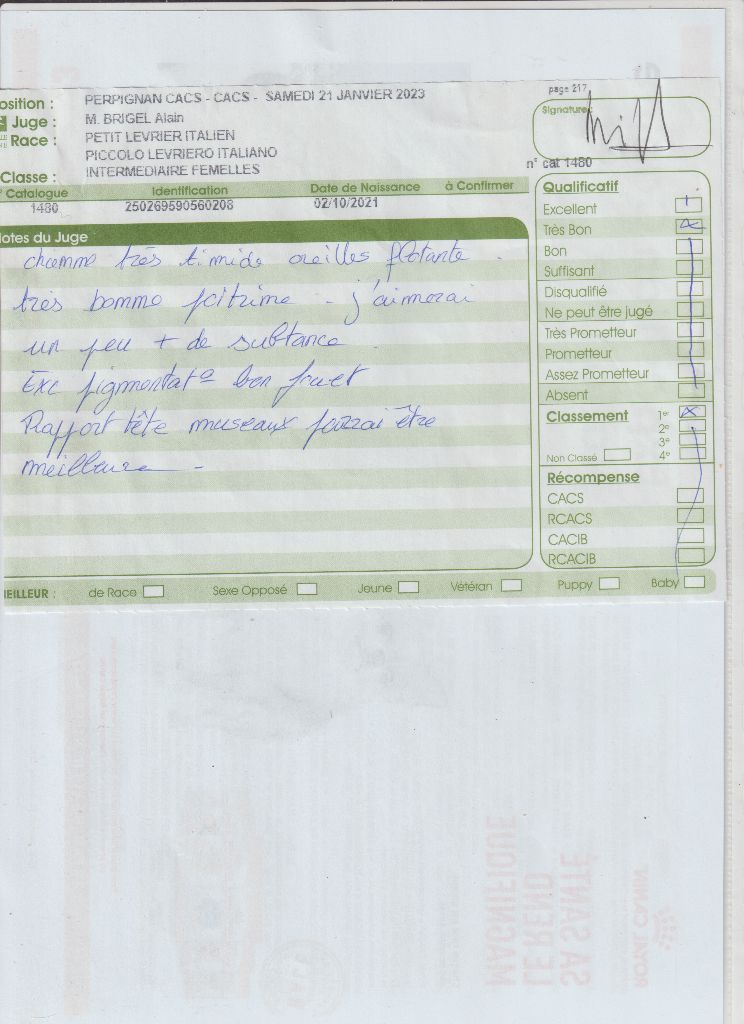 page 217
osition : PERPIGNAN CACS - CACS - SAMEDI 21 JANVIER 2023
Signature
Juge : M. BRIGEL Alain
Race : PETIT LEVRIER ITALIEN
PICCOLO LEVRIERO ITALIANO
n° cat 1480
Classe : INTERMEDIAIRE FEMELLES
° Catalogue Identification Date de Naissance à Confirmer
1480 250269590560208 02/10/2021
otes du Juge
chienne très timide oreilles flotante.
très bonne poitrine - j'aimerai
un peu + de substance
Exc pigmentat° bon fouet
Rapport tête museaux pourrai être
meilleure -
Qualificatif
Excellent
Très Bon
Bon
Suffisant
Disqualifié
Ne peut être jugé
Très Prometteur
Prometteur
Assez Prometteur
Absent
Classement 1er
2e
3e
Non Classé 4e
Récompense
CACS
RCACS
CACIB
RCACIB
EILLEUR : de Race Sexe Opposé Jeune Vétéran Puppy Baby
MAGNIFIQUE
LE REND
SA SANTÉ
ROYAL CANIN